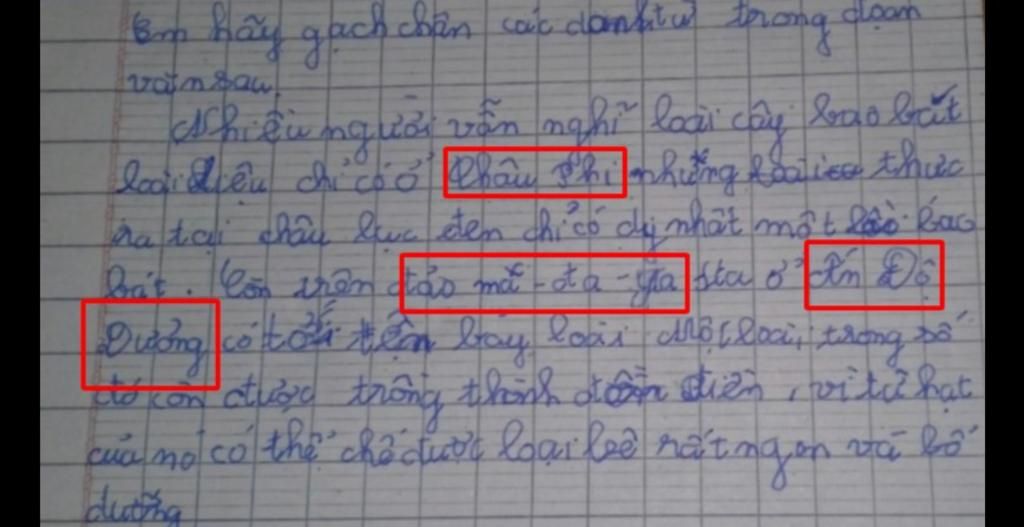 Em hãy gạch chân các danh từ trong đoạn
văn sau.
Nhiều người vẫn nghĩ loài cây bao bát
loại diệu chỉ có ở Châu Phi nhưng thực
ra tại châu lục đen chỉ có duy nhất một loài bao
bát. Còn trên đảo mã-đa-ga sta ở Ấn Độ
Dương có tới bảy loài một loài, trong số
đó còn được trồng thành đồn điền, vì từ hạt
của nó có thể chế được loại rất ngon và bổ
dưỡng